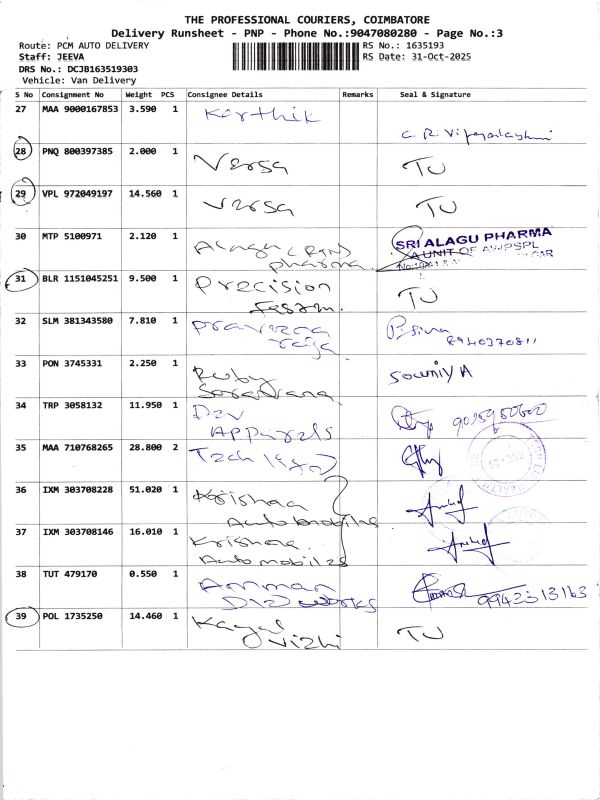 THE PROFESSIONAL COURIERS, COIMBATORE
Delivery Runsheet - PNP - Phone No.:9047080280 - Page No.:3
Route: PCM AUTO DELIVERY RS No.: 1635193
Staff: JEEVA RS Date: 31-Oct-2025
DRS No.: DCJB163519303
Vehicle: Van Delivery
S No Consignment No Weight PCS Consignee Details Remarks Seal & Signature
27 MAA 9000167853 3.590 1 Karthik
C. R. Vijayalayshmi
28 PNQ 800397385 2.000 1 Versa TU
29 VPL 972049197 14.560 1 Versa TU
30 MTP 5100971 2.120 1 Alagu (RTN) SRI ALAGU PHARMA
pharma A UNIT OF
31 BLR 1151045251 9.500 1 Precision TU
32 SLM 381343580 7.810 1 praveena
8940370811
33 PON 3745331 2.250 1 Ruby Sowmiya A
Saravana
34 TRP 3058132 11.950 1 Dev
Apparels
35 MAA 710768265 28.800 2 Tech
36 IXM 303708228 51.020 1 Krishna
Automobiles
37 IXM 303708146 16.010 1 Krishna
Automobiles
38 TUT 479170 0.550 1 Amman
Die works 9942313163
39 POL 1735250 14.460 1 Kayal TU
vizhi